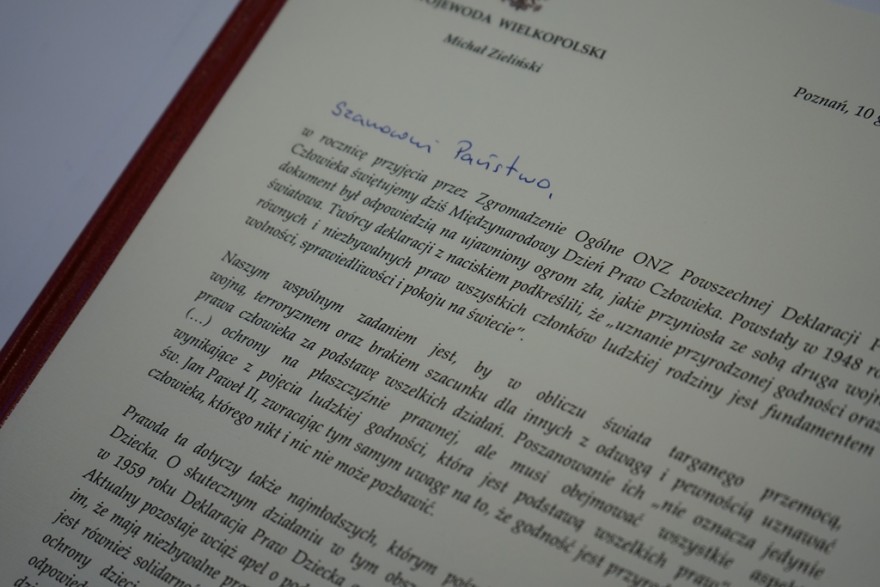 WOJEWODA WIELKOPOLSKI
Michał Zieliński
Poznań, 10 g
Szanowni Państwo,
w rocznicę przyjęcia przez Zgromadzenie Ogólne ONZ Powszechnej Deklaracji P
Człowieka świętujemy dziś Międzynarodowy Dzień Praw Człowieka. Powstały w 1948 ro
dokument był odpowiedzią na ujawniony ogrom zła, jakie przyniosła ze sobą druga wojn
światowa. Twórcy deklaracji z naciskiem podkreślili, że „uznanie przyrodzonej godności oraz
równych i niezbywalnych praw wszystkich członków ludzkiej rodziny jest fundamentem
wolności, sprawiedliwości i pokoju na świecie”.
Naszym wspólnym zadaniem jest, by w obliczu świata targanego przemocą,
wojną, terroryzmem oraz brakiem szacunku dla innych z odwagą i pewnością uznawać
prawa człowieka za podstawę wszelkich działań. Poszanowanie ich „nie oznacza jedynie
(...) ochrony na płaszczyźnie prawnej, ale musi obejmować wszystkie aspe
wynikające z pojęcia ludzkiej godności, która jest podstawą wszelkich praw”
św. Jan Paweł II, zwracając tym samym uwagę na to, że godność jest przy
człowieka, którego nikt i nic nie może pozbawić.
Prawda ta dotyczy także najmłodszych, którym poś
Dziecka. O skutecznym działaniu w tym obs
w 1959 roku Deklaracja Praw Dziecka
Aktualny pozostaje wciąż apel o p
im, że mają niezbywalne pr
jest również solidarno
ochrony dzieci
odpowied